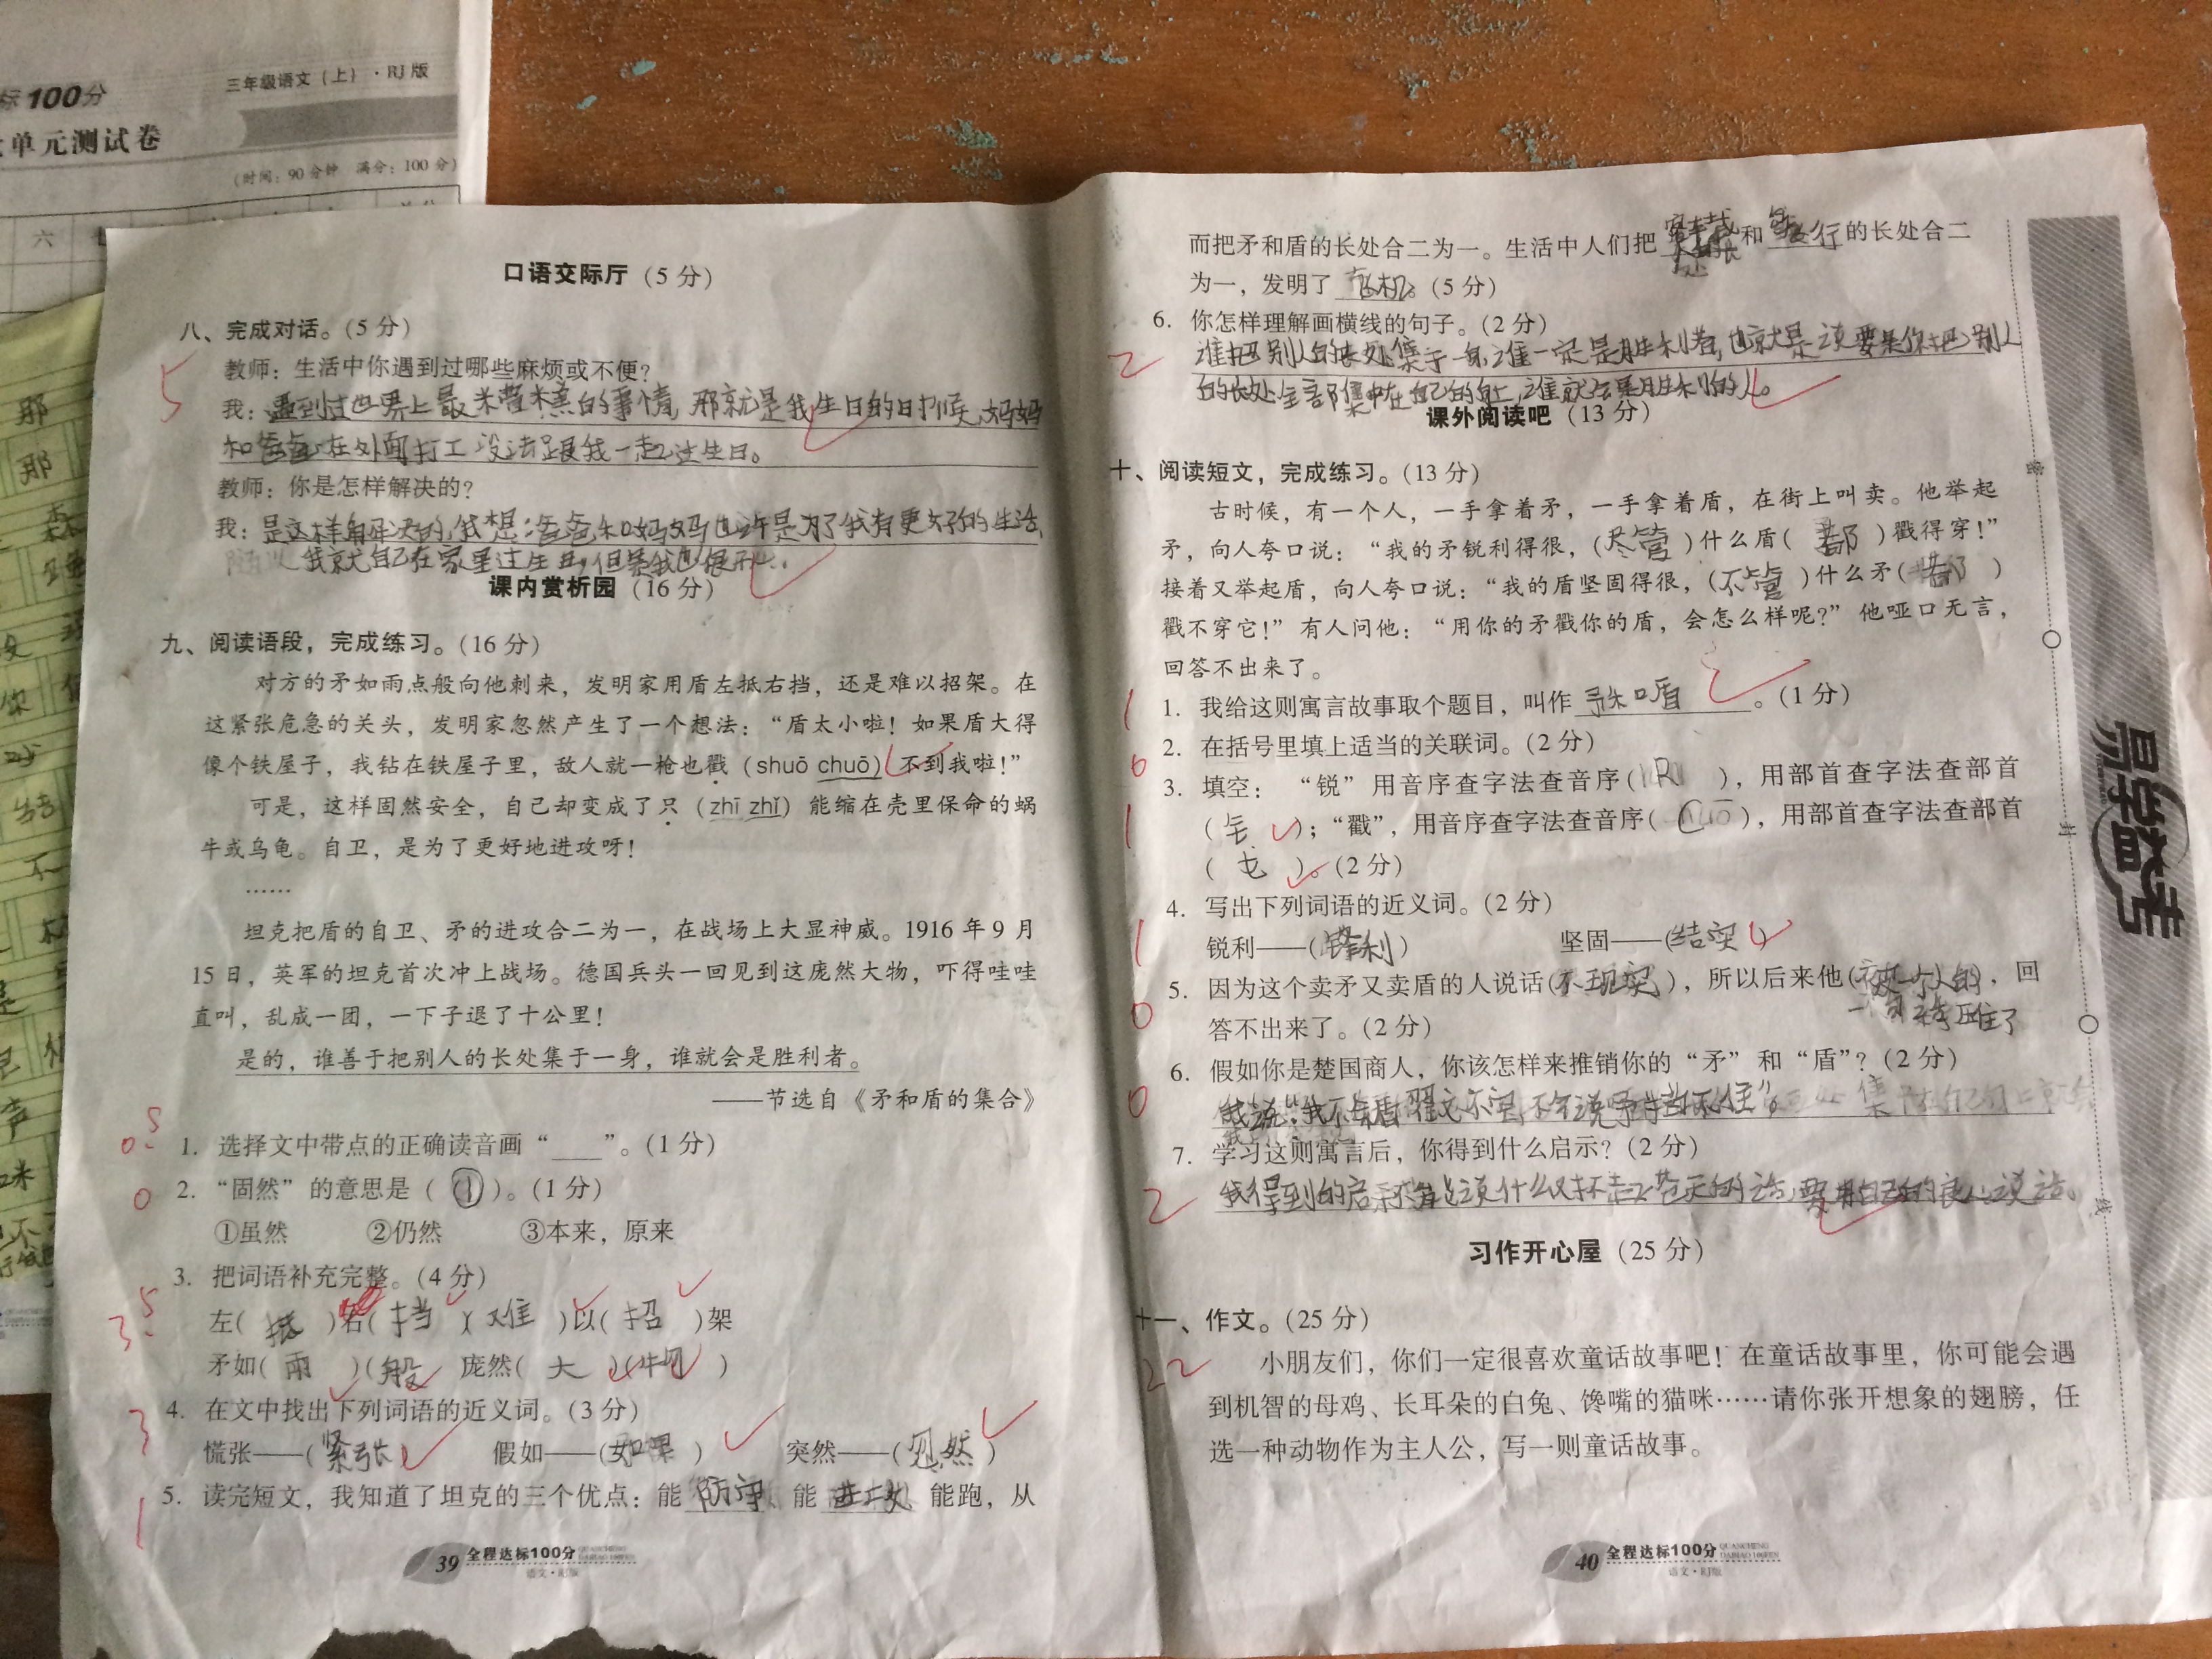 三年级语文（上）·RJ版
标100分
单元测试卷
（时间：90分钟 满分：100分）
六
口语交际厅（5分）
八、完成对话。（5分）
教师：生活中你遇到过哪些麻烦或不便？
5
我：遇到过世界上最糟糕的事情，那就是我生日的时候，妈妈
和爸爸在外面打工没法跟我一起过生日。
教师：你是怎样解决的？
我：是这样解决的，我想：爸爸和妈妈也许是为了我有更好的生活，
我就自己在家里过生日，但是我也很开心。
课内赏析园（16分）
九、阅读语段，完成练习。（16分）
对方的矛如雨点般向他刺来，发明家用盾左抵右挡，还是难以招架。在
这紧张危急的关头，发明家忽然产生了一个想法：“盾太小啦！如果盾大得
像个铁屋子，我钻在铁屋子里，敌人就一枪也戳（shuō chuō）不到我啦！”
可是，这样固然安全，自己却变成了只（zhī zhǐ）能缩在壳里保命的蜗
牛或乌龟。自卫，是为了更好地进攻呀！
……
坦克把盾的自卫、矛的进攻合二为一，在战场上大显神威。1916年9月
15日，英军的坦克首次冲上战场。德国兵头一回见到这庞然大物，吓得哇哇
直叫，乱成一团，一下子退了十公里！
是的，谁善于把别人的长处集于一身，谁就会是胜利者。
——节选自《矛和盾的集合》
0.5
1. 选择文中带点的正确读音画“____”。（1分）
0
2. “固然”的意思是（ ① ）。（1分）
①虽然 ②仍然 ③本来，原来
3. 把词语补充完整。（4分）
3.5
左（ 抵 ）右（ 挡 ）（ 难 ）以（ 招 ）架
矛如（ 雨 ）（ 般 庞然（ 大 ）（ 物 ）
4. 在文中找出下列词语的近义词。（3分）
3
慌张——（紧张） 假如——（如果） 突然——（忽然）
5. 读完短文，我知道了坦克的三个优点：能 防守 能 进攻 能跑，从
1
39 全程达标100分
QUANCHENG DABIAO 100FEN
语文·RJ版
而把矛和盾的长处合二为一。生活中人们把 和 的长处合二
为一，发明了 。（5分）
6. 你怎样理解画横线的句子。（2分）
2
谁把别人的长处集于一身，谁一定是胜利者，也就是说要是你把别人
的长处全部集中在自己的身上，谁就会是胜利的人。
课外阅读吧（13分）
十、阅读短文，完成练习。（13分）
古时候，有一个人，一手拿着矛，一手拿着盾，在街上叫卖。他举起
矛，向人夸口说：“我的矛锐利得很，（尽管）什么盾（ 都 ）戳得穿！”
接着又举起盾，向人夸口说：“我的盾坚固得很，（不管）什么矛（ 都 ）
戳不穿它！”有人问他：“用你的矛戳你的盾，会怎么样呢？”他哑口无言，
回答不出来了。
1
1. 我给这则寓言故事取个题目，叫作 矛和盾 。（1分）
2. 在括号里填上适当的关联词。（2分）
0
3. 填空：“锐”用音序查字法查音序（ R ），用部首查字法查部首
1
（ 钅 ）；“戳”，用音序查字法查音序（ ），用部首查字法查部首
（ ）。（2分）
4. 写出下列词语的近义词。（2分）
1
锐利——（锋利） 坚固——（结实）
5. 因为这个卖矛又卖盾的人说话（不现实），所以后来他（被一个人的，回
0
难了
答不出来了。（2分）
6. 假如你是楚国商人，你该怎样来推销你的“矛”和“盾”？（2分）
0
我说：“我不
7. 学习这则寓言后，你得到什么启示？（2分）
2
我得到的启示
习作开心屋（25分）
十一、作文。（25分）
22
小朋友们，你们一定很喜欢童话故事吧！在童话故事里，你可能会遇
到机智的母鸡、长耳朵的白兔、馋嘴的猫咪……请你张开想象的翅膀，任
选一种动物作为主人公，写一则童话故事。
40 全程达标100分
QUANCHENG DABIAO 100FEN
语文·RJ版
密
封
线
易学益考